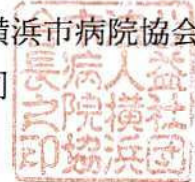 横浜市病院協会
司
公益社団
法人横浜
市病院協
会長之印